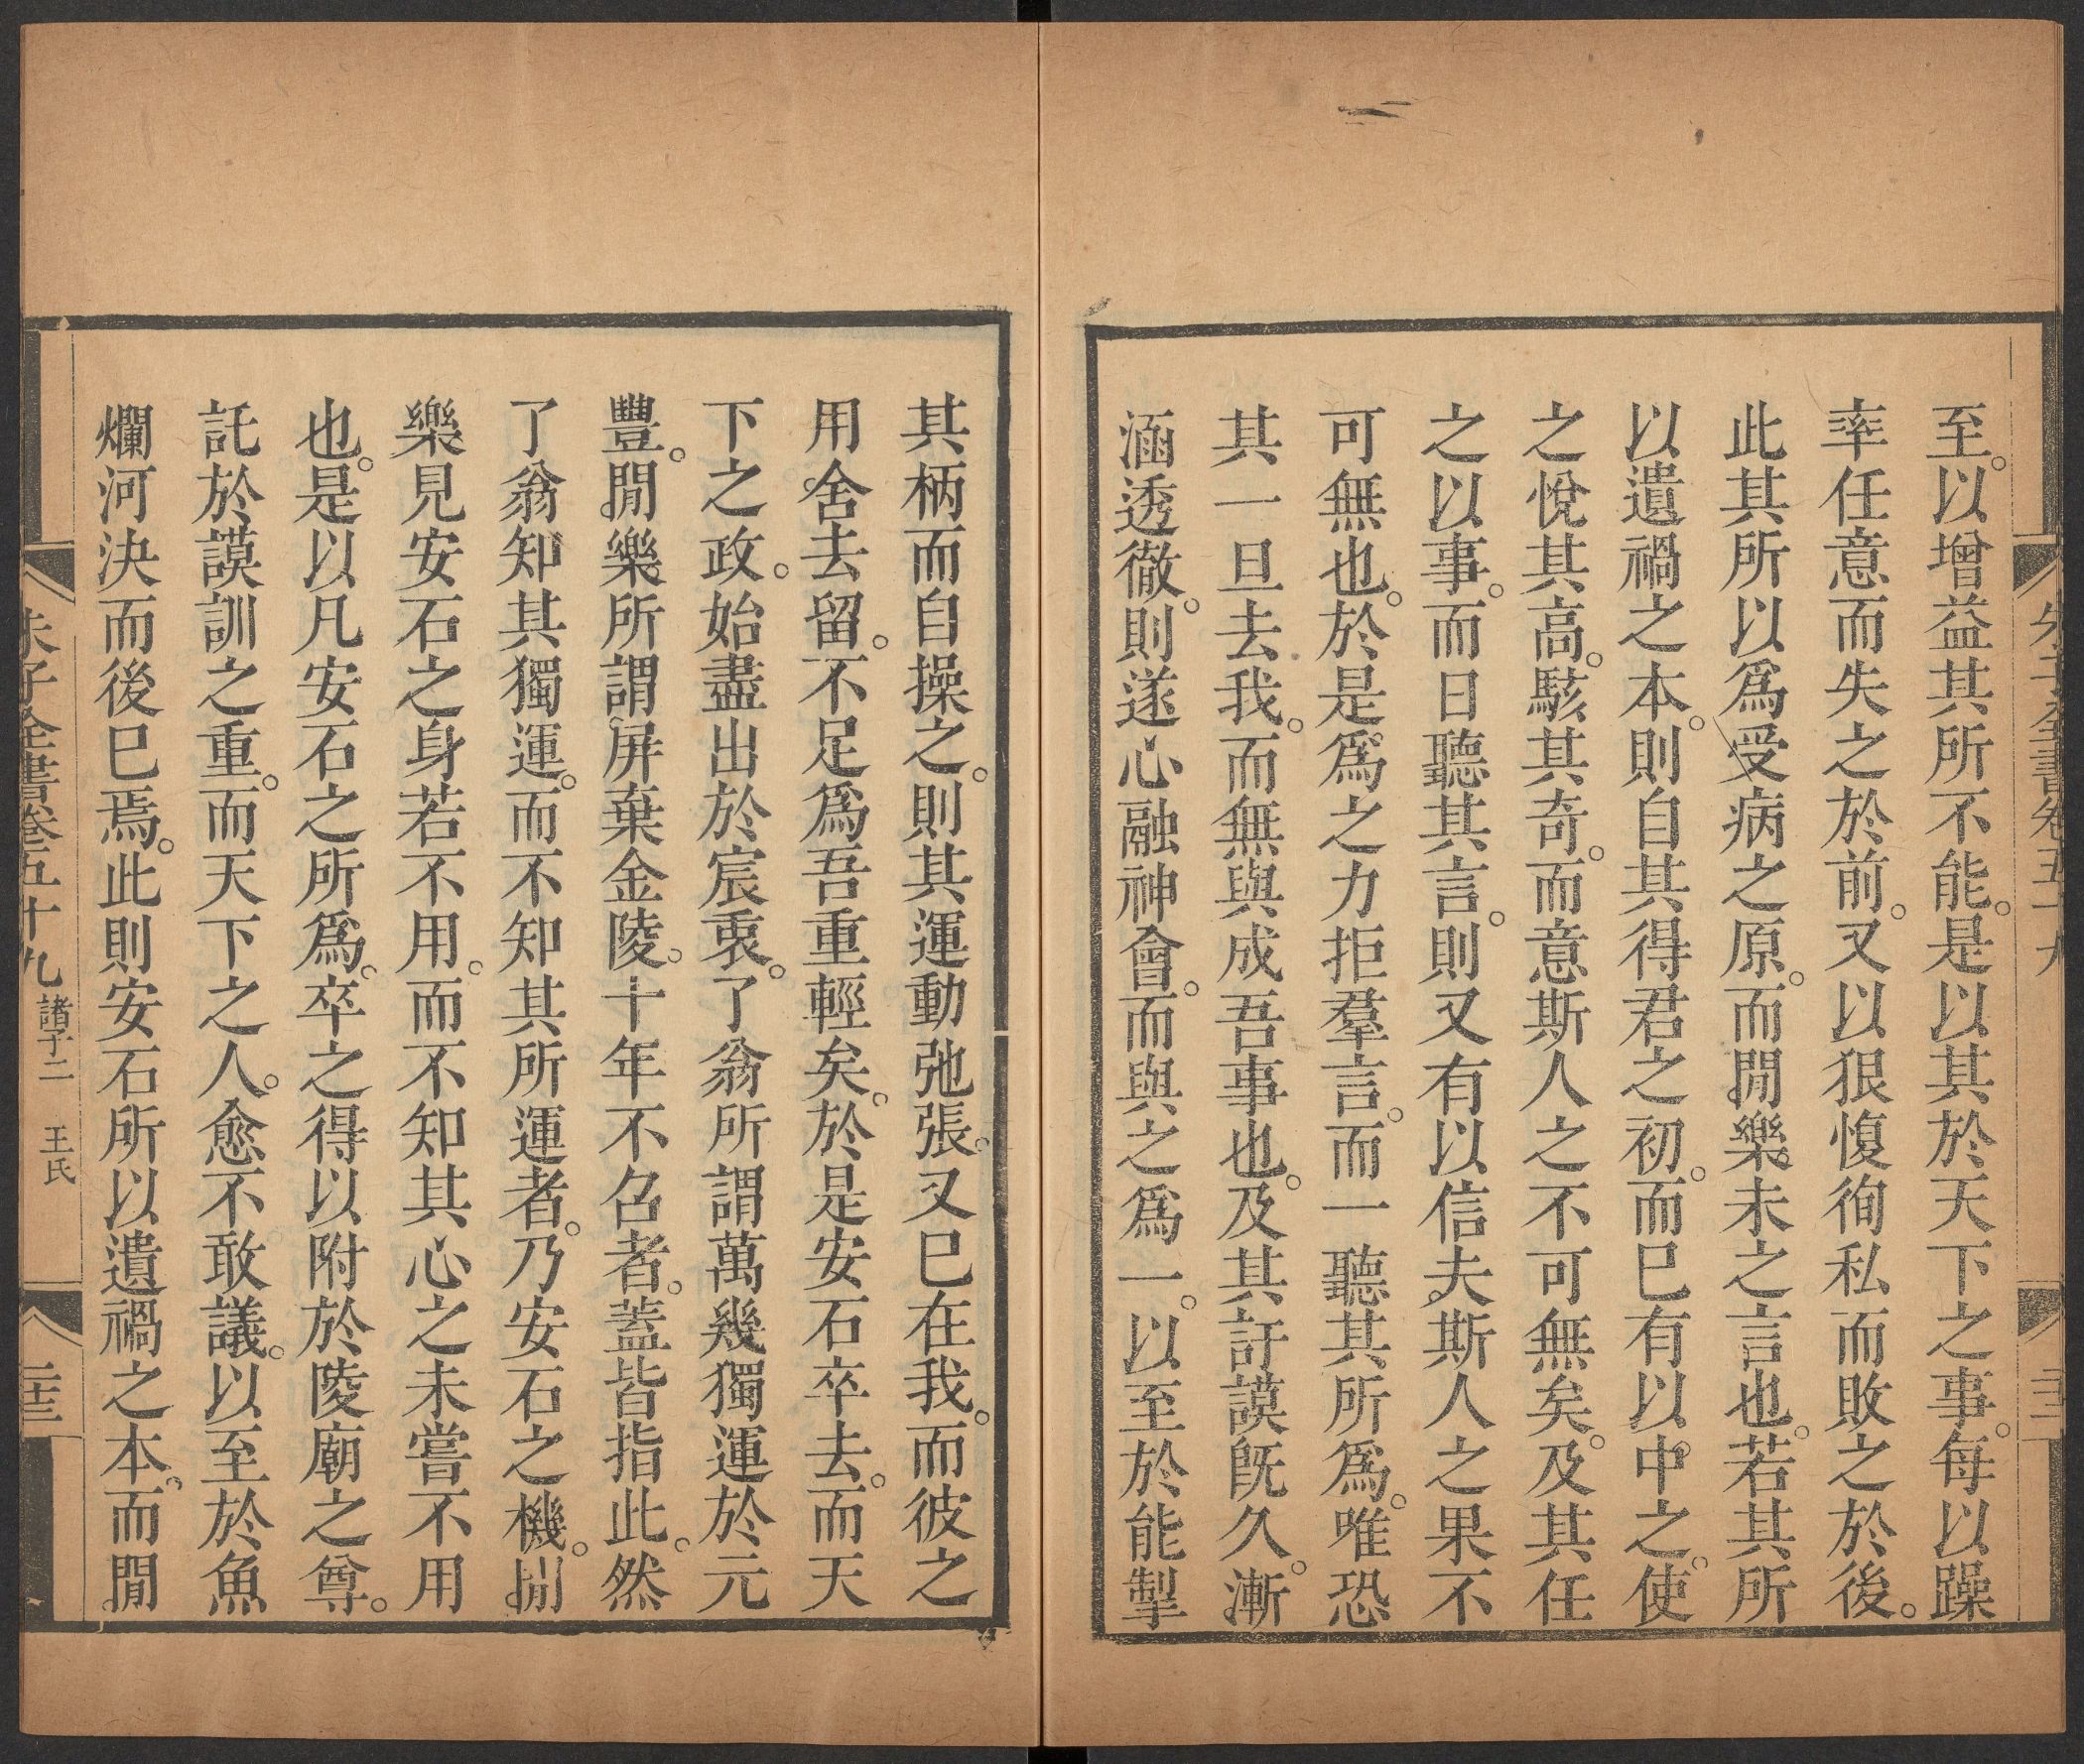 朱子全書卷五十九
至。以增益其所不能。是以其於天下之事。每以躁
率任意而失之於前。又以狠愎徇私而敗之於後。
此其所以爲受病之原。而閒樂。未之言也。若其所
以遺禍之本。則自其得君之初。而巳有以中之。使
之悅其高。駭其奇。而意斯人之不可無矣。及其任
之以事。而日聽其言。則又有以信夫。斯人之果不
可無也。於是。爲之力拒羣言。而一聽其所爲。唯恐
其一旦去我。而無與成吾事也。及其訏謨旣久。漸
涵透徹。則遂心融神會。而與之爲一。以至於能掣
其柄而自操之。則其運動弛張。又巳在我。而彼之
用。舍去留。不足爲吾重輕矣。於是安石卒去。而天
下之政。始盡出於宸衷。了翁所謂萬幾獨運於元
豐。閒。樂所謂。屏棄金陵。十年不召者。蓋皆指此。然
了翁知其獨運。而不知其所運者。乃安石之機。閒。
樂見安石之身若不用。而不知其心之未嘗不用
也。是以凡安石之所爲。卒之得以附於陵廟之尊。
託於謨訓之重。而天下之人。愈不敢議。以至於魚
爛河決而後巳焉。此則安石所以遺禍之本。而閒。
朱子全書卷五十九 諸子二 王氏
二十三